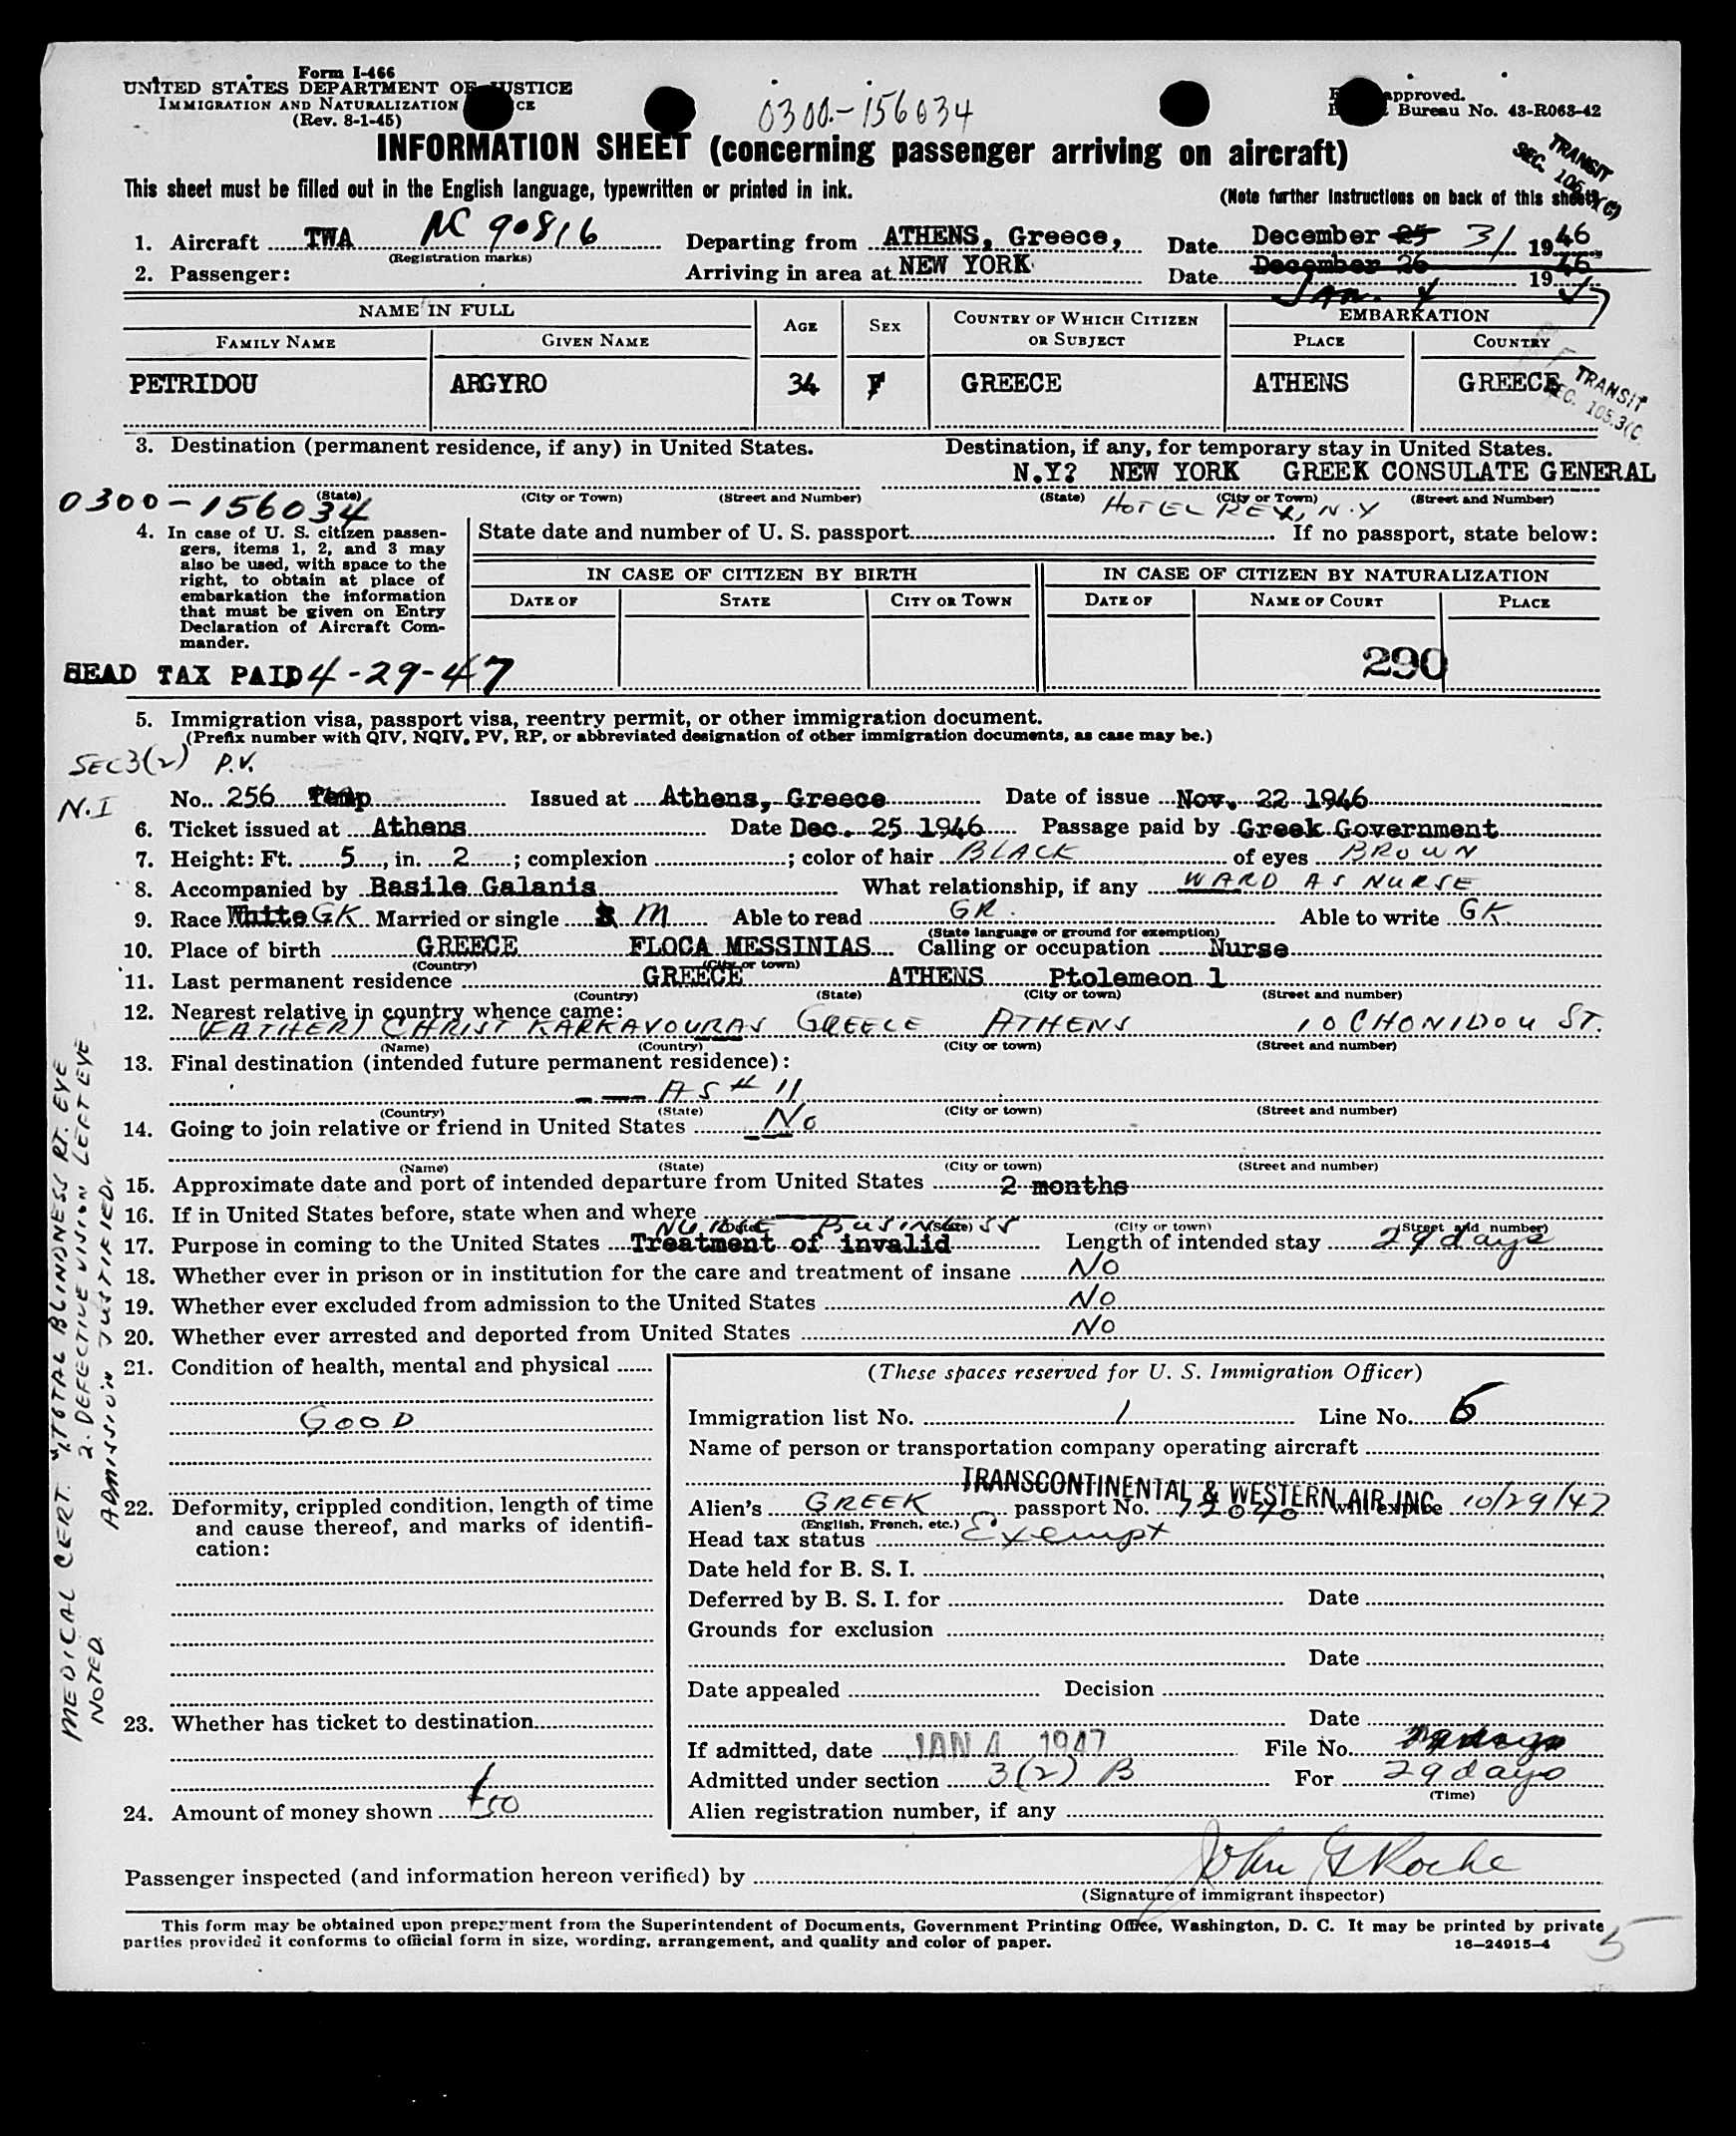 Form I-466
UNITED STATES DEPARTMENT OF JUSTICE
IMMIGRATION AND NATURALIZATION
(Rev. 8-1-45)
0300-156034
approved.
Bureau No. 43-R063-42
INFORMATION SHEET (concerning passenger arriving on aircraft)
TRANSIT
SEC. 105.3(C)
This sheet must be filled out in the English language, typewritten or printed in ink.
(Note further instructions on back of this sheet)
1. Aircraft TWA NC 90816 Departing from ATHENS, Greece, Date December 25 31 1946
(Registration marks)
2. Passenger: Arriving in area at NEW YORK Date December 26 1946
JAN. 4 47
NAME IN FULL AGE SEX COUNTRY OF WHICH CITIZEN OR SUBJECT EMBARKATION
FAMILY NAME GIVEN NAME PLACE COUNTRY
PETRIDOU ARGYRO 34 F GREECE ATHENS GREECE
TRANSIT
SEC. 105.3(C
3. Destination (permanent residence, if any) in United States. Destination, if any, for temporary stay in United States.
N.Y? NEW YORK GREEK CONSULATE GENERAL
(State) (City or Town) (Street and Number) (State) (City or Town) (Street and Number)
0300-156034 HOTEL REX, N.Y
4. In case of U. S. citizen passengers, items 1, 2, and 3 may
also be used, with space to the
right, to obtain at place of
embarkation the information
that must be given on Entry
Declaration of Aircraft Commander.
State date and number of U. S. passport If no passport, state below:
IN CASE OF CITIZEN BY BIRTH IN CASE OF CITIZEN BY NATURALIZATION
DATE OF STATE CITY OR TOWN DATE OF NAME OF COURT PLACE
290
HEAD TAX PAID 4-29-47
5. Immigration visa, passport visa, reentry permit, or other immigration document.
(Prefix number with QIV, NQIV, PV, RP, or abbreviated designation of other immigration documents, as case may be.)
SEC 3(2) P.V.
N.I
No. 256 Temp Issued at Athens, Greece Date of issue Nov. 22 1946
6. Ticket issued at Athens Date Dec. 25 1946 Passage paid by Greek Government
7. Height: Ft. 5, in. 2; complexion ; color of hair BLACK of eyes BROWN
8. Accompanied by Basile Galanis What relationship, if any WARD AS NURSE
9. Race White GK Married or single S M Able to read GR. Able to write GK
(State language or ground for exemption)
10. Place of birth GREECE FLOCA MESSINIAS Calling or occupation Nurse
(Country) (City or town)
11. Last permanent residence GREECE ATHENS Ptolemeon 1
(Country) (State) (City or town) (Street and number)
12. Nearest relative in country whence came:
(FATHER) CHRIST KARKAVOURAS GREECE ATHENS 10 CHONIDOU ST.
(Name) (Country) (City or town) (Street and number)
13. Final destination (intended future permanent residence):
AS # 11
(Country) (State) (City or town) (Street and number)
14. Going to join relative or friend in United States No
(Name) (State) (City or town) (Street and number)
15. Approximate date and port of intended departure from United States 2 months
16. If in United States before, state when and where
(State) (City or town) (Street and number)
NURSE BUSINESS
17. Purpose in coming to the United States Treatment of invalid Length of intended stay 29 days
18. Whether ever in prison or in institution for the care and treatment of insane No
19. Whether ever excluded from admission to the United States No
20. Whether ever arrested and deported from United States No
21. Condition of health, mental and physical
GOOD
22. Deformity, crippled condition, length of time
and cause thereof, and marks of identification:
23. Whether has ticket to destination
24. Amount of money shown 50
(These spaces reserved for U. S. Immigration Officer)
Immigration list No. 1 Line No. 6
Name of person or transportation company operating aircraft
TRANSCONTINENTAL & WESTERN AIR INC
Alien's GREEK passport No. will expire 10/29/47
(English, French, etc.)
Head tax status Exempt
Date held for B. S. I.
Deferred by B. S. I. for Date
Grounds for exclusion
Date
Date appealed Decision
Date
If admitted, date JAN 4 1947 File No.
Admitted under section 3(2) B For 29 days
(Time)
Alien registration number, if any
MEDICAL CERT. "1. TOTAL BLINDNESS RT. EYE
2. DEFECTIVE VISION LEFT EYE
NOTED. ADMISSION JUSTIFIED.
Passenger inspected (and information hereon verified) by John G Roche
(Signature of immigrant inspector)
This form may be obtained upon prepayment from the Superintendent of Documents, Government Printing Office, Washington, D. C. It may be printed by private
parties provided it conforms to official form in size, wording, arrangement, and quality and color of paper.
16—24915-4
5